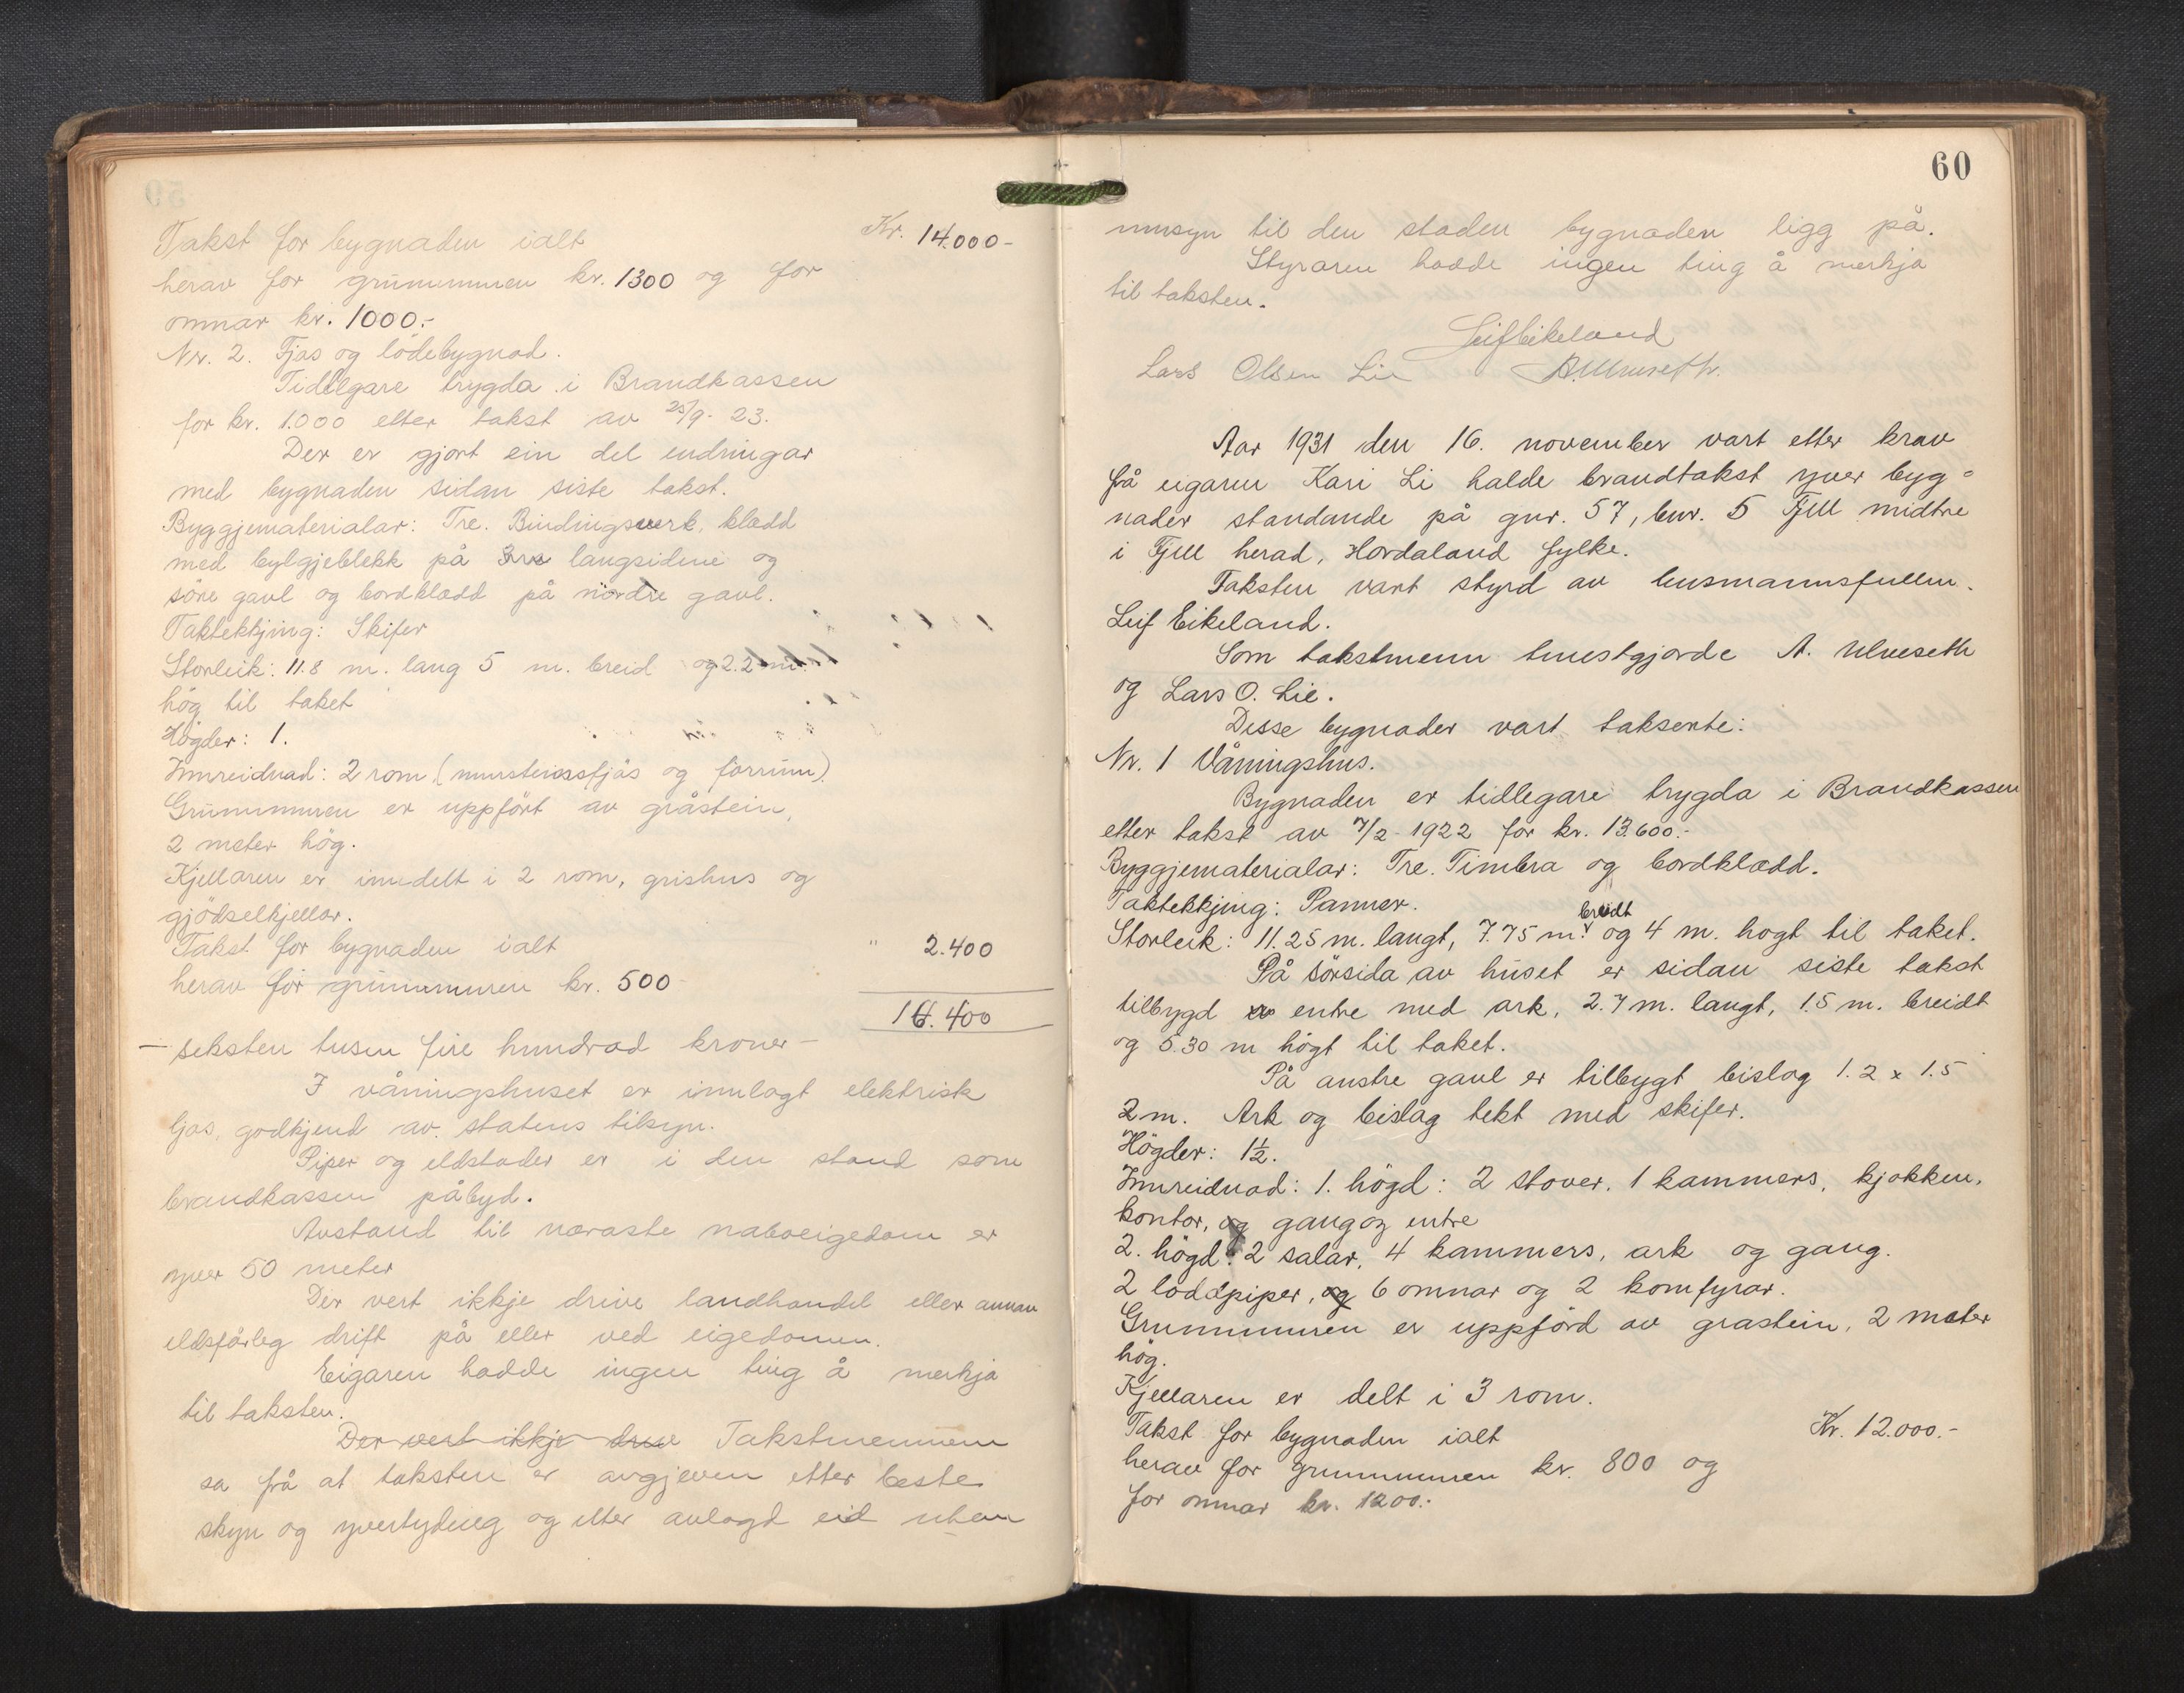 Takst for bygnaden ialt Kr. 14.000-
herav for grunnmuren kr. 1300 og for
omnar kr. 1000.-
Nr. 2. Fjøs og lödebygnad.
Tidlegare trygda i Brandkassen
for kr. 1.000 etter takst av 25/9- 23.
Der er gjort ein del endringar
med bygnaden sidan siste takst.
Byggjematerialar: Tre. Bindingsverk, klædd
med bylgjeblekk på langsidene og
söre gavl og bordklædd på nördre gavl.
Taktekkjing: Skifer
Storleik: 11.8 m. lang 5 m. breid og 2.2 m.
hög til taket
Högder: 1.
Innreidnad: 2 rom (mursteinsfjös og forrum).
Grunnmuren er uppfört av gråstein,
2 meter hög.
Kjellaren er inndelt i 2 rom, grishus og
gjödselkjellar.
Takst for bygnaden ialt " 2.400
herav for grunnmuren kr. 500
16.400
- seksten tusen fire hundrad kroner -
I våningshuset er innlagt elektrisk
ljos, godkjend av statens tilsyn.
Piper og eldstader er i den stand som
brandkassen påbyd.
Avstand til næraste naboeigedom er
yver 50 meter
Der vert ikkje drive landhandel eller annan
eldsfårleg drift på eller ved eigedomen.
Eigaren hadde ingen ting å merkja
til taksten.
Der vert ikkje drive Takstmennene
sa frå at taksten er avgjeven etter beste
skyn og yvertyding og etter avlagd eid utan
60
umsyn til den staden bygnaden ligg på.
Styraren hadde ingen ting å merkja
til taksten.
Leif Eikeland
Lars Olsen Lie A. Ulveseth.
Aar 1931 den 16. november vart etter krav
frå eigaren Kari Li halde brandtakst yver byg-
nader standande på gnr. 57, bnr. 5 Fjell midtre
i Fjell herad, Hordaland fylke.
Taksten vart styrd av lensmannsfullm.
Leif Eikeland.
Som takstmenn tenestgjorde A. Ulveseth
og Lars O. Lie.
Disse bygnader vart takserte:
Nr. 1 Våningshus.
Bygnaden er tidlegare trygda i Brandkassen
etter takst av 7/2 1922 for kr. 13.600.-
Byggjematerialar: Tre. Timbra og bordklædd.
Taktekkjing: Panner.
Storleik: 11.25 m. langt, 7.75 m. breidt og 4 m. högt til taket.
På sörsida av huset er sidan siste takst
tilbygd entre med ark, 2.7 m. langt, 1.5 m. breidt
og 5.30 m högt til taket.
På austre gavl er tilbygt bislag 1.2 x 1.5
2 m. Ark og bislag tekt med skifer.
Högder: 1½.
Innreidnad: 1. högd: 2 stover, 1 kammers, kjøkken,
kontor, og gang og entre
2. högd: 2 salar, 4 kammers, ark og gang.
2 loddpiper, og 6 omnar og 2 komfyrar.
Grunnmuren er uppförd av gråstein, 2 meter
hög.
Kjellaren er delt i 3 rom.
Takst for bygnaden ialt Kr. 12.000.-
herav for grunnmuren kr. 800 og
for omnar kr. 1200.-